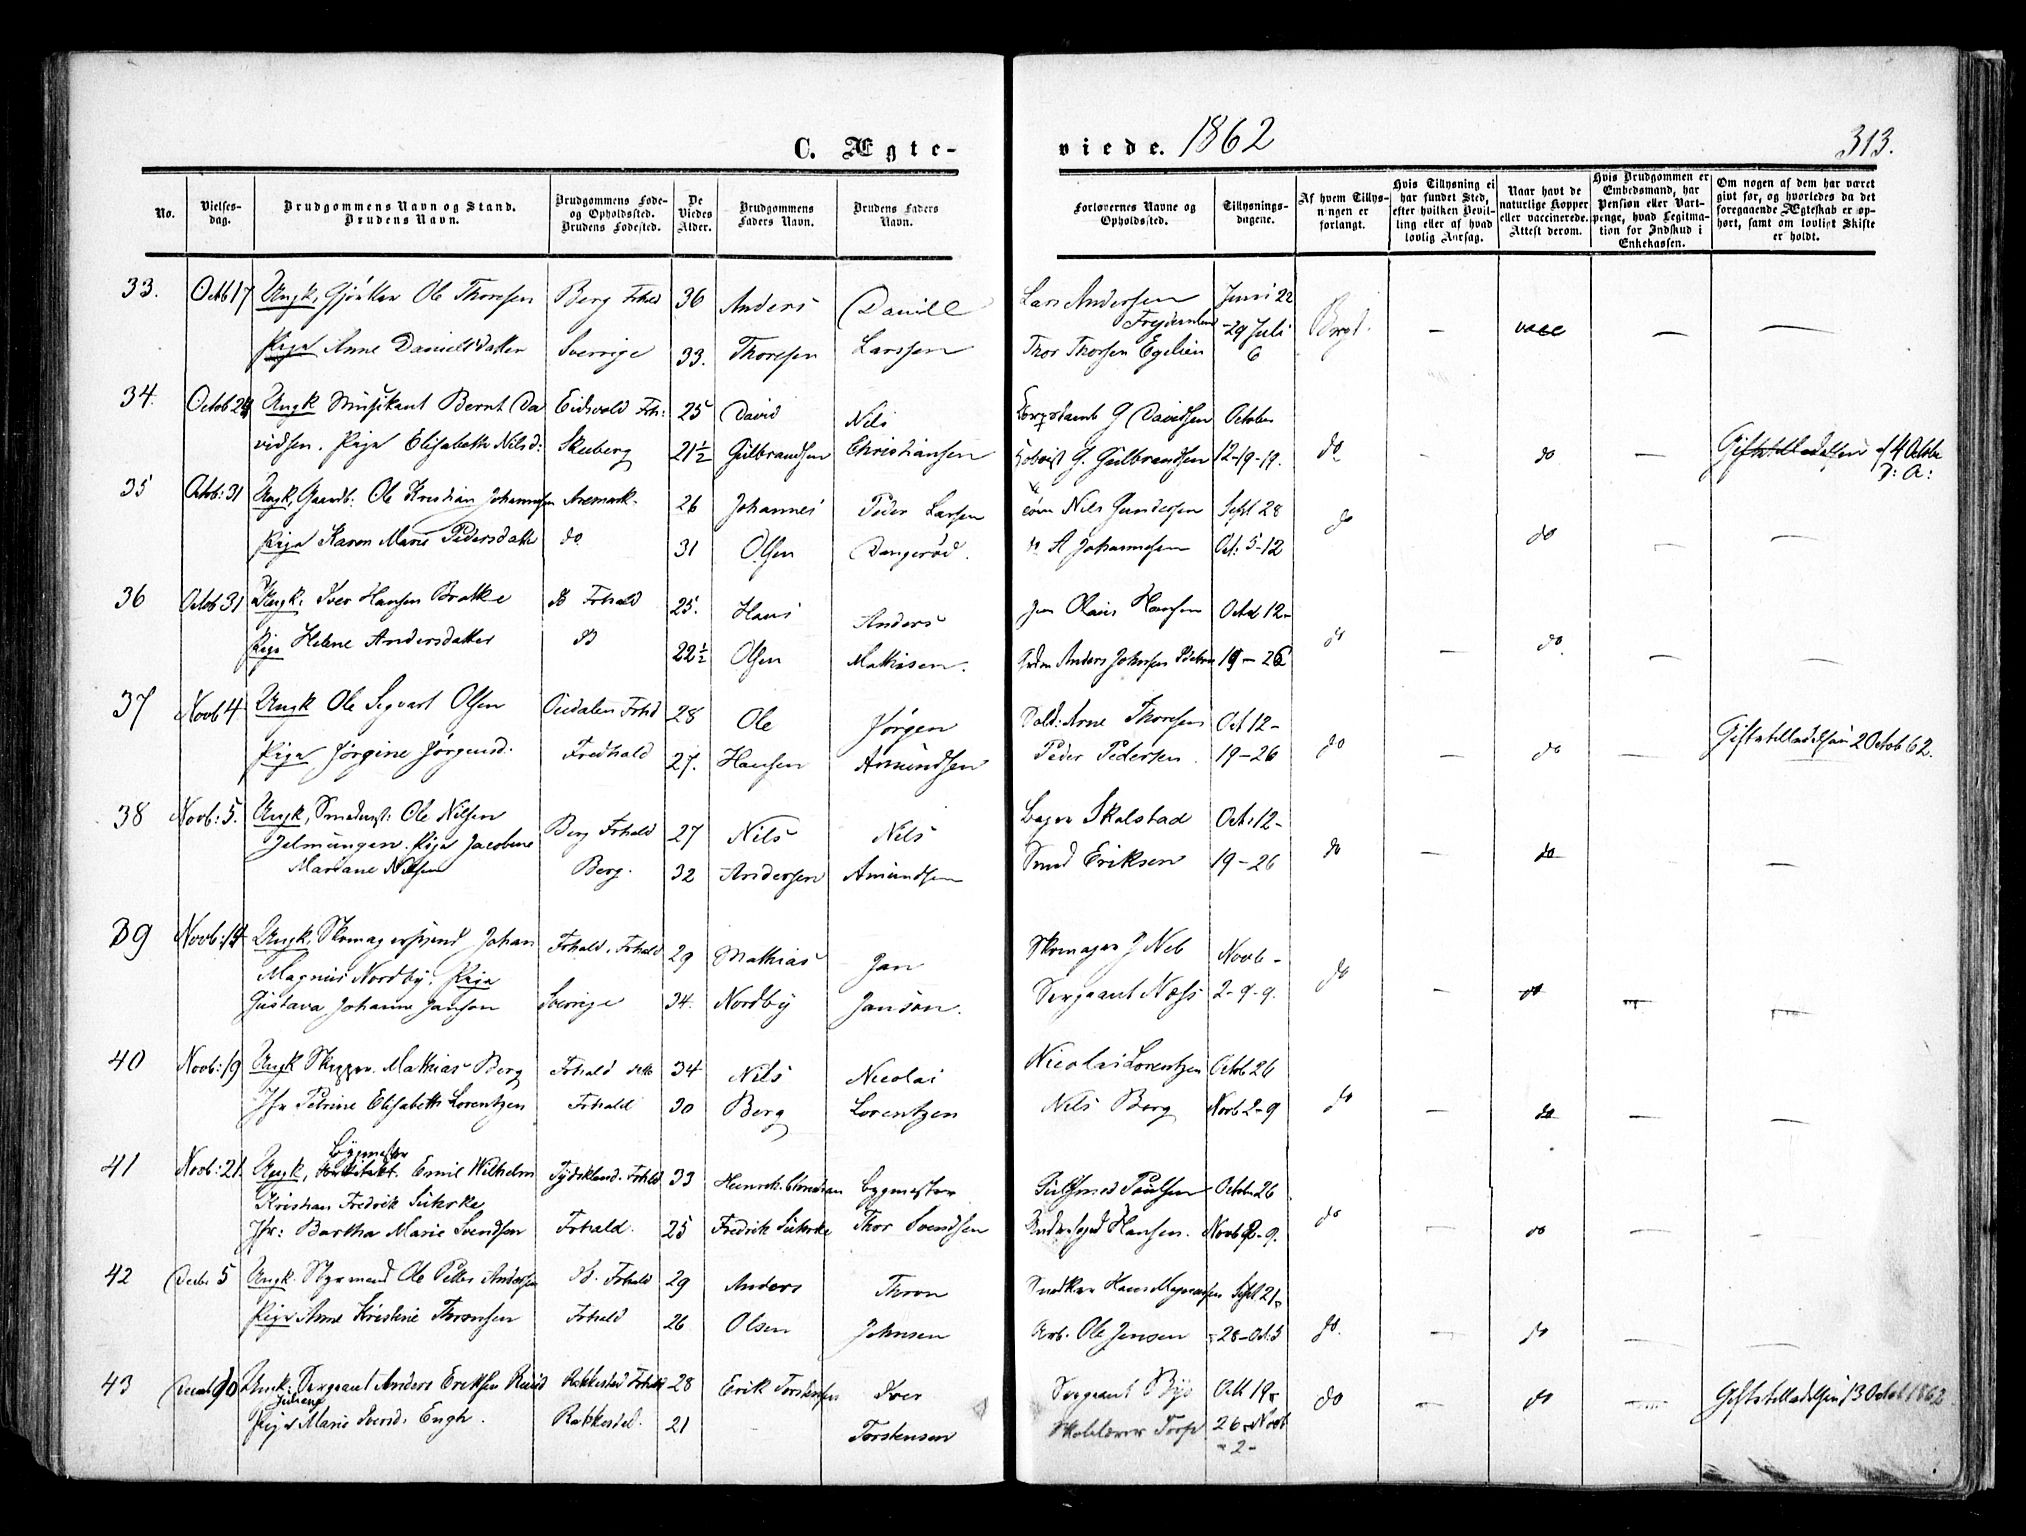 C. Ægte-
viede. 1862
313.
No.
Vielses-
dag.
Brudgommens Navn og Stand.
Brudens Navn.
Brudgommens Føde-
og Opholdssted.
Brudens Fødested.
De
Viedes
Alder.
Brudgommens
Faders Navn.
Brudens Faders
Navn.
Forlovernes Navne og
Opholdssted.
Tillysnings-
dagene.
Af hvem Tillys-
ningen er
forlangt.
Hvis Tillysning ei
har fundet Sted,
efter hvilken Bevil-
ling eller af hvad
lovlig Aarsag.
Naar havt de
naturlige Kopper
eller vaccinerede.
Attest derom.
Hvis Brudgommen er
Embedsmand, har
Pension eller Vart-
penge, hvad Legitima-
tion for Indskud i
Enkekassen.
Om nogen af dem har været
givt før, og hvorledes da det
foregaaende Ægteskab er op-
hørt, samt om lovligt Skifte
er holdt.
33. Octb 17 Ungk, Ole Thoresen Berg Frhld 36 Anders Daniel Lars Andersen Juni 22
Pige Anne Danielsdatter Sverrige 33. Thoresen Larssen Thor Thorsen Egelien -29 Juli 6 Brud. — vacc — —
34. Octob 24 Ungk Musikant Bernt Da Eidsvold Frh: 25 David Nils G Davidsen October
vidsen. Pige Elisabeth Nilsd: Skeberg 21½ Gulbrandsen Christiansen G. Gulbrandsen 12-19-19. do — do — Giftetilladelsen af 4 Octbr
D: A:
35 Octob: 31 Ungk, Gaardb: Ole Kristian Johannesen Aremark. 26 Johannes Peder Larsen Nils Gundersen Sept 28
Pige Karen Marie Pedersdatt do 31 Olsen Dangerød. A Johannesen Oct: 5-12 do do — —
36 Octob 31 Ungk: Iver Hansen Bratke Frhald 25. Hans Anders Olaus Hansen Octob 12-
Pige Helene Andersdatter 22½ Olsen Mathisen. Anders Johnsen 19-26 do — do — —
37 Novb 4 Ungk Ole Segvart Olsen Frhd 28 Ole Jørgen Arne Thoresen Oct 12-
Pige Jørgine Jørgensd. Fredhald 27. Hansen Amundsen Peder Pedersen. 19-26 do — do — Giftetilladelsen 2 Octob 62.
38 Novb: 5. Ungk, Ole Nilsen Berg Frhald 27 Nils Nils Bager Skolstad Oct: 12-
Jelmungen. Pige Jacobine
Mariane Nilsen Berg. 32 Andersen Amundsen Smed Eriksen 19-26 do — do —
39 Novb: 14 Ungk, Skomagersvend Johan Frhald, Frhald 29 Mathias Jan Skomager J Neb Novb-
Magnus Nordby. Pige
Gustava Johanne Janson Sverrige 34. Nordby Janson. Sergeant Næss 2-9-9. do — do — —
40 Novb: 19 Ungk Skipper. Mathias Berg Frhald 34 Nils Nicolai Nicolai Lorentzen Octob 26
Jfr Petrine Elisabeth Lorentzen Frhald 30 Berg Lorentzen Nils Berg Novb 2-9 do — do — —
41 Novb: 21. Ungk, Bygmester Emil Wilhelm Tydskland. Frhald 33 Heinrik Christian Bygmester Paulsen Octobr 26
Kristian Fredrik Suhrke
Jfr: Bartha Marie Svendsen Frhald. 25 Fredrik Suhrke Thor Svendsen Hansen. Novb 2-9. do — do — —
42 Decbr 5 Ungk. Styrmand Ole Petter Andersen Frhald 29 Anders Thron Snedker Hans Sept 21-
Pige Anne Kristine Thronsen Frhald 26 Olsen Johnsen Arb. Ole Jensen 28-Oct. 5 do. — do — —
43 Decemb 10 Ungk: Sergeant Anders Eriksen Ruud Rakkestad Frhald 28 Erik Torstensen Iver Sergeant Bye Octb 19-
Pige Juliene Marie Iversd: Engh. Rakkestd. 21 Torstensen Skolelærer Torp 26-Novb
-2- do — do — Giftetilladelsen 13 Octob 1862